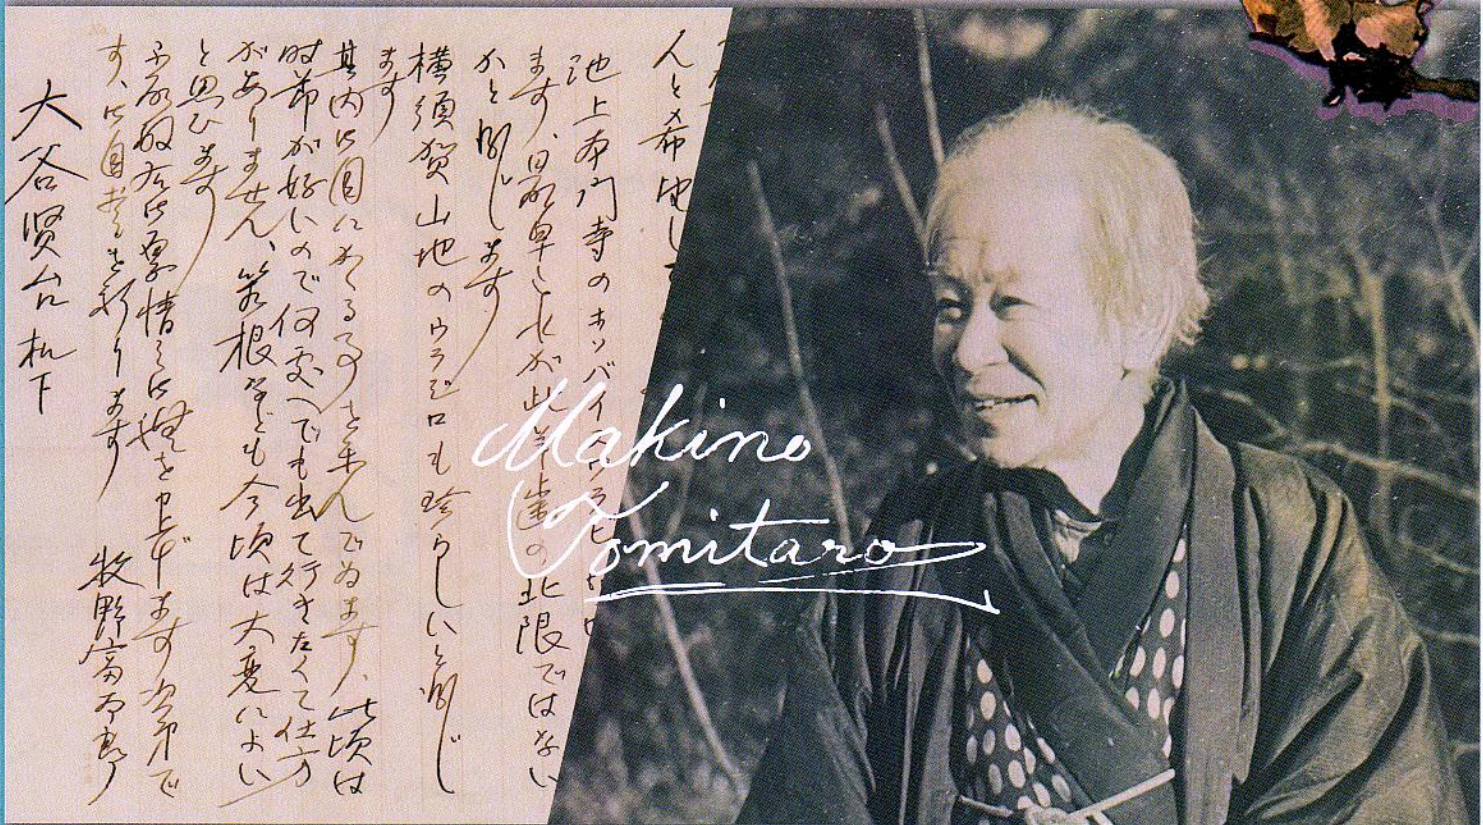 池上本門寺のホソバイ
ます、最早これが此羊歯の、北限ではない
かと存じます
横須賀山地のウラジロも珍らしいと存じ
ます
其内に目にかゝる事と楽んでゐます、此頃は
時節が好いので何処へでも出て行き度くて仕方
がありません、箱根などでも今頃は大変によい
と思ひます
不取敢右御厚情に御礼を申上げます次第で
す、御自愛を祈ります
牧野富太郎
大谷賢台 机下
Makino
Tomitaro